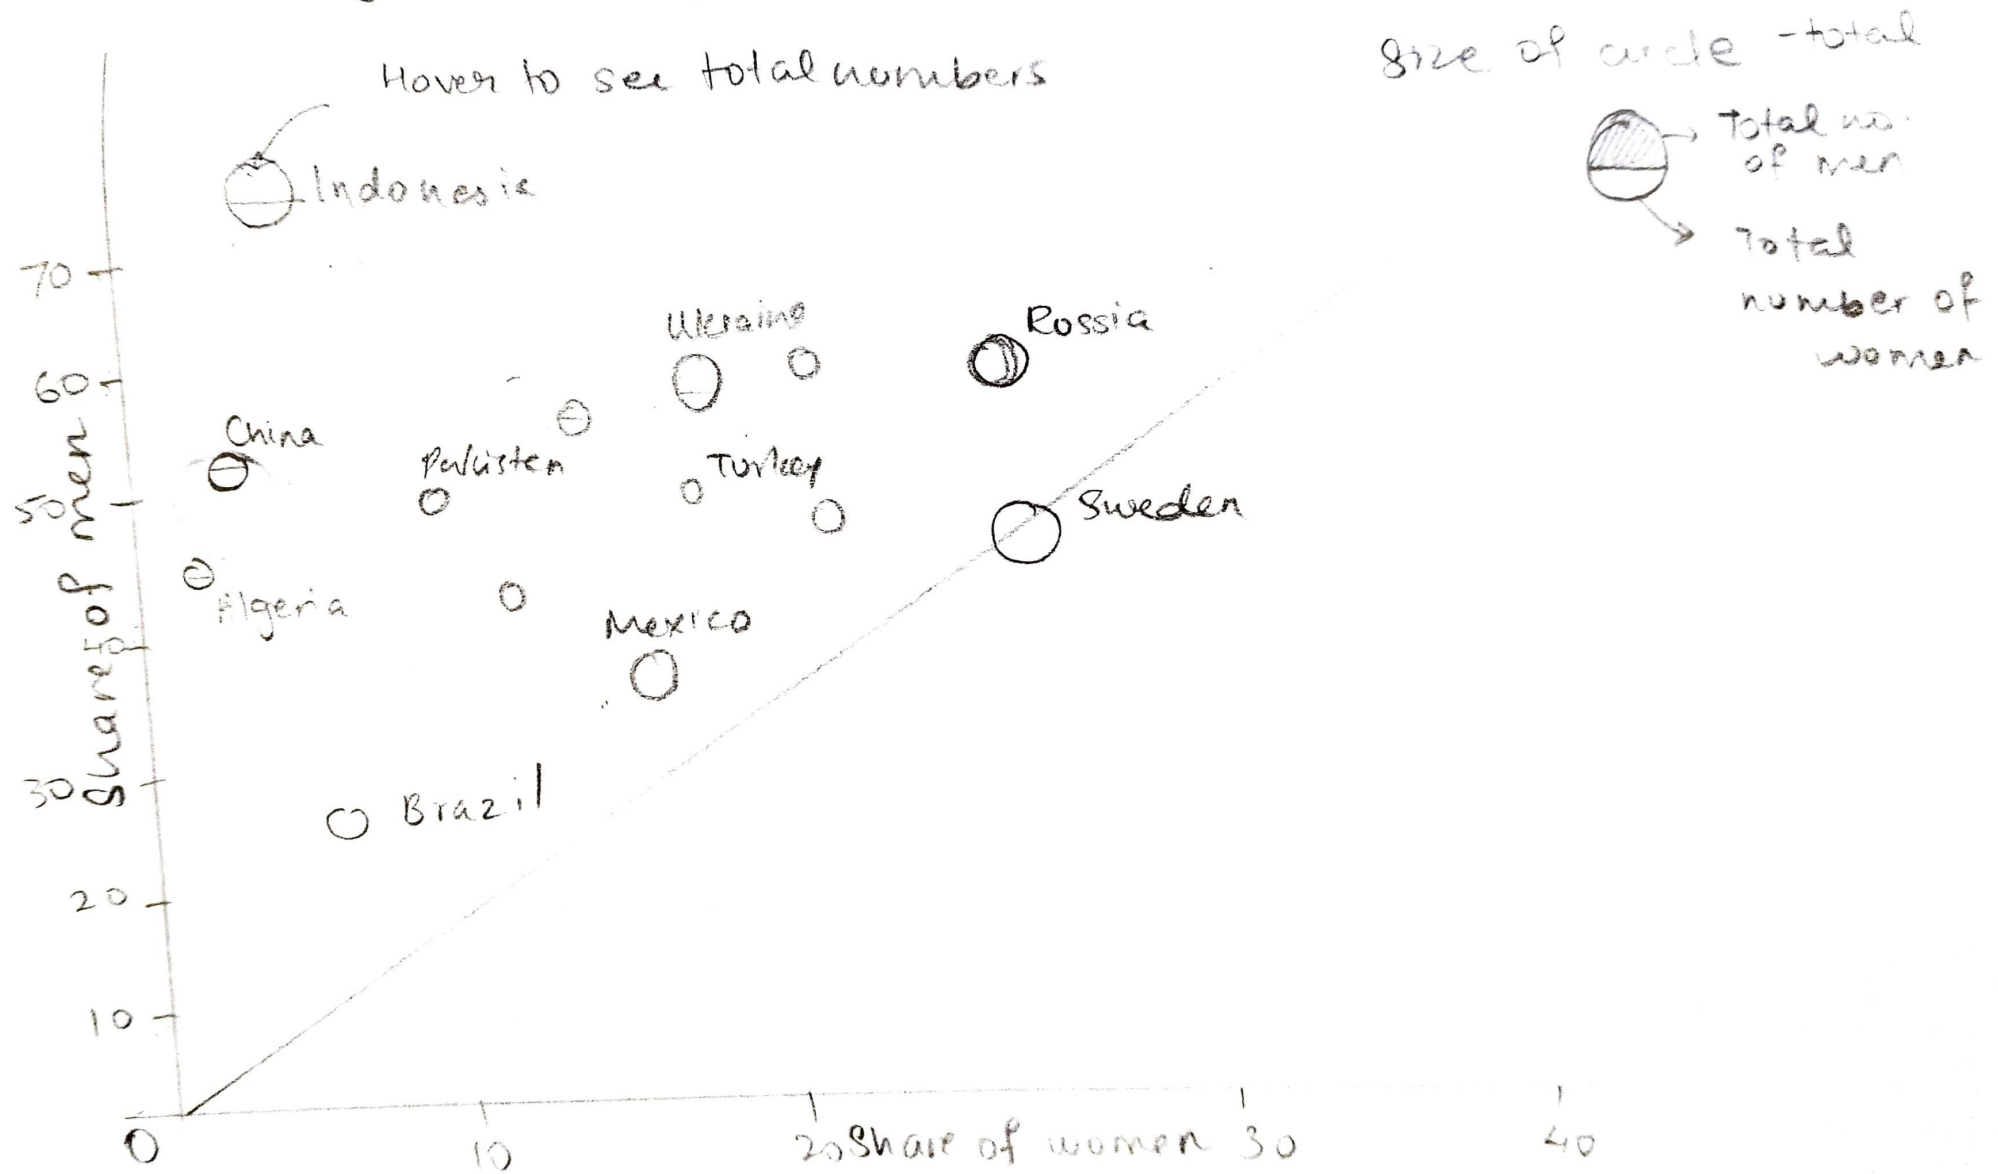 Hover to see total numbers
Size of circle - total
Total no.
of men
Total
number of
women
Indonesia
70
Ukraine
Russia
60
China
Pakisten
Turkey
50
Sweden
Algeria
Mexico
40
Share of men
30
Brazil
20
10
0
10
20
Share of women
30
40